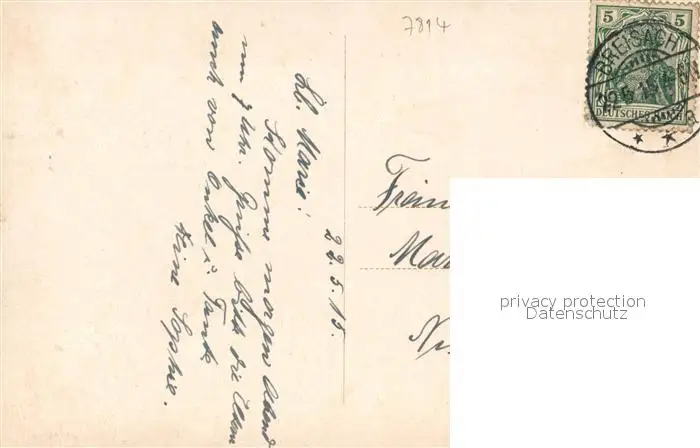 7814
5 5
BREISACH
DEUTSCHES REICH
22.5.15.
Lb. Marie!
Komme morgen Abend
um 7 Uhr. Grüße bitte die Eltern
auch von Onkel u. Tante
Deine Sophie.
Mar
privacy protection
Datenschutz